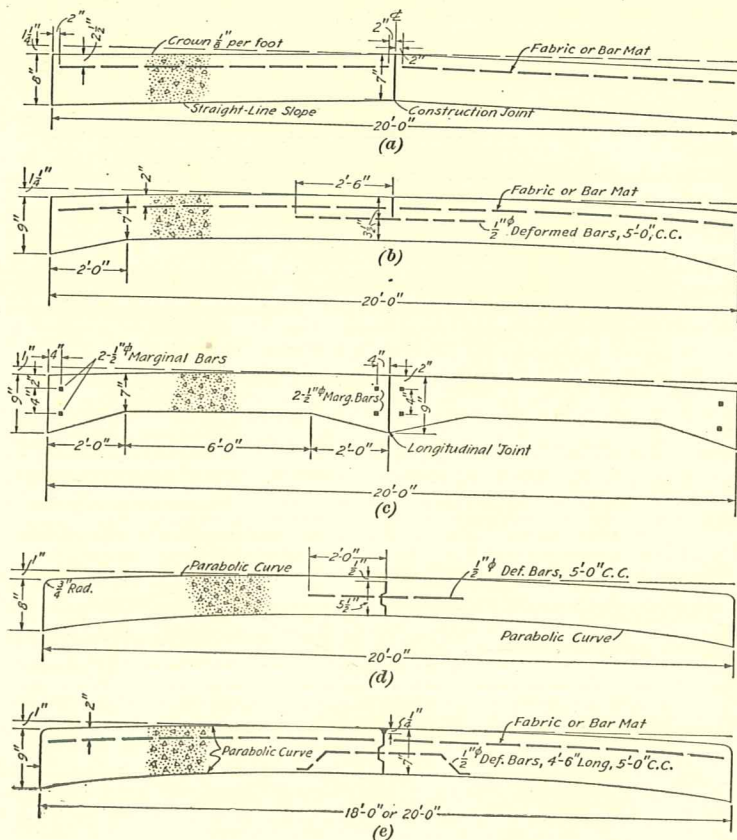 2" ₵ 2"
1 1/4" 2 1/2" Crown 1/8" per foot 2" Fabric or Bar Mat
8" 7"
Straight-Line Slope Construction Joint
20'-0"
(a)
1 1/4" 2" 2'-6" Fabric or Bar Mat
9" 7" 3 1/2" 1/2"ϕ Deformed Bars, 5'-0", C.C.
2'-0" (b)
20'-0"
1" 4" 2-1/2"ϕ Marginal Bars 4" 2"
9" 2" 4" 7" 2-1/2"ϕ Marg. Bars 4" 9"
2'-0" 6'-0" 2'-0" Longitudinal Joint
20'-0"
(c)
1" Parabolic Curve 2'-0" 1/2"ϕ Def. Bars, 5'-0" C.C.
8" 3/4" Rad. 1/2" 5 1/2"
Parabolic Curve
20'-0"
(d)
1" 2" 1/4" Fabric or Bar Mat
9" Parabolic Curve 7" 1/2"ϕ Def. Bars, 4'-6" Long, 5'-0" C.C.
18'-0" or 20'-0"
(e)